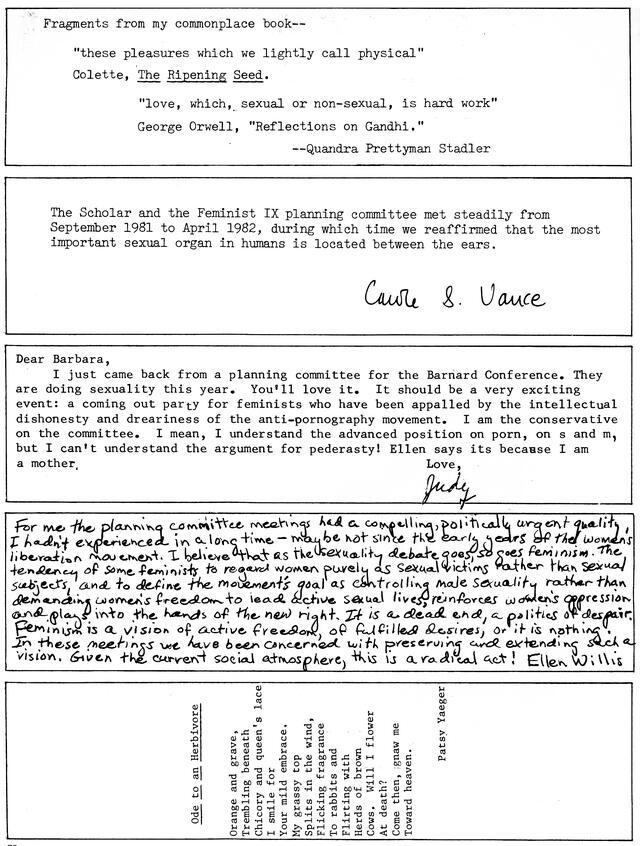 Fragments from my commonplace book--
"these pleasures which we lightly call physical"
Colette, The Ripening Seed.
"love, which, sexual or non-sexual, is hard work"
George Orwell, "Reflections on Gandhi."
--Quandra Prettyman Stadler
The Scholar and the Feminist IX planning committee met steadily from
September 1981 to April 1982, during which time we reaffirmed that the most
important sexual organ in humans is located between the ears.
Carole S. Vance
Dear Barbara,
I just came back from a planning committee for the Barnard Conference. They
are doing sexuality this year. You'll love it. It should be a very exciting
event: a coming out party for feminists who have been appalled by the intellectual
dishonesty and dreariness of the anti-pornography movement. I am the conservative
on the committee. I mean, I understand the advanced position on porn, on s and m,
but I can't understand the argument for pederasty! Ellen says its because I am
a mother.
Love,
Judy
For me the planning committee meetings had a compelling, politically urgent quality
I hadn't experienced in a long time – maybe not since the early years of the women's
liberation movement. I believe that as the sexuality debate goes, so goes feminism. The
tendency of some feminists to regard women purely as sexual victims rather than sexual
subjects, and to define the movement's goal as controlling male sexuality rather than
demanding women's freedom to lead active sexual lives, reinforces women's oppression
and plays into the hands of the new right. It is a dead end, a politics of despair.
Feminism is a vision of active freedom, of fulfilled desires, or it is nothing.
In these meetings we have been concerned with preserving and extending such a
vision. Given the current social atmosphere, this is a radical act! Ellen Willis
Ode to an Herbivore
Orange and grave,
Trembling beneath
Chicory and queen's lace
I smile for
Your mild embrace.
My grassy top
Splits in the wind,
Flicking fragrance
To rabbits and
Flirting with
Herds of brown
Cows. Will I flower
At death?
Come then, gnaw me
Toward heaven.
Patsy Yaeger